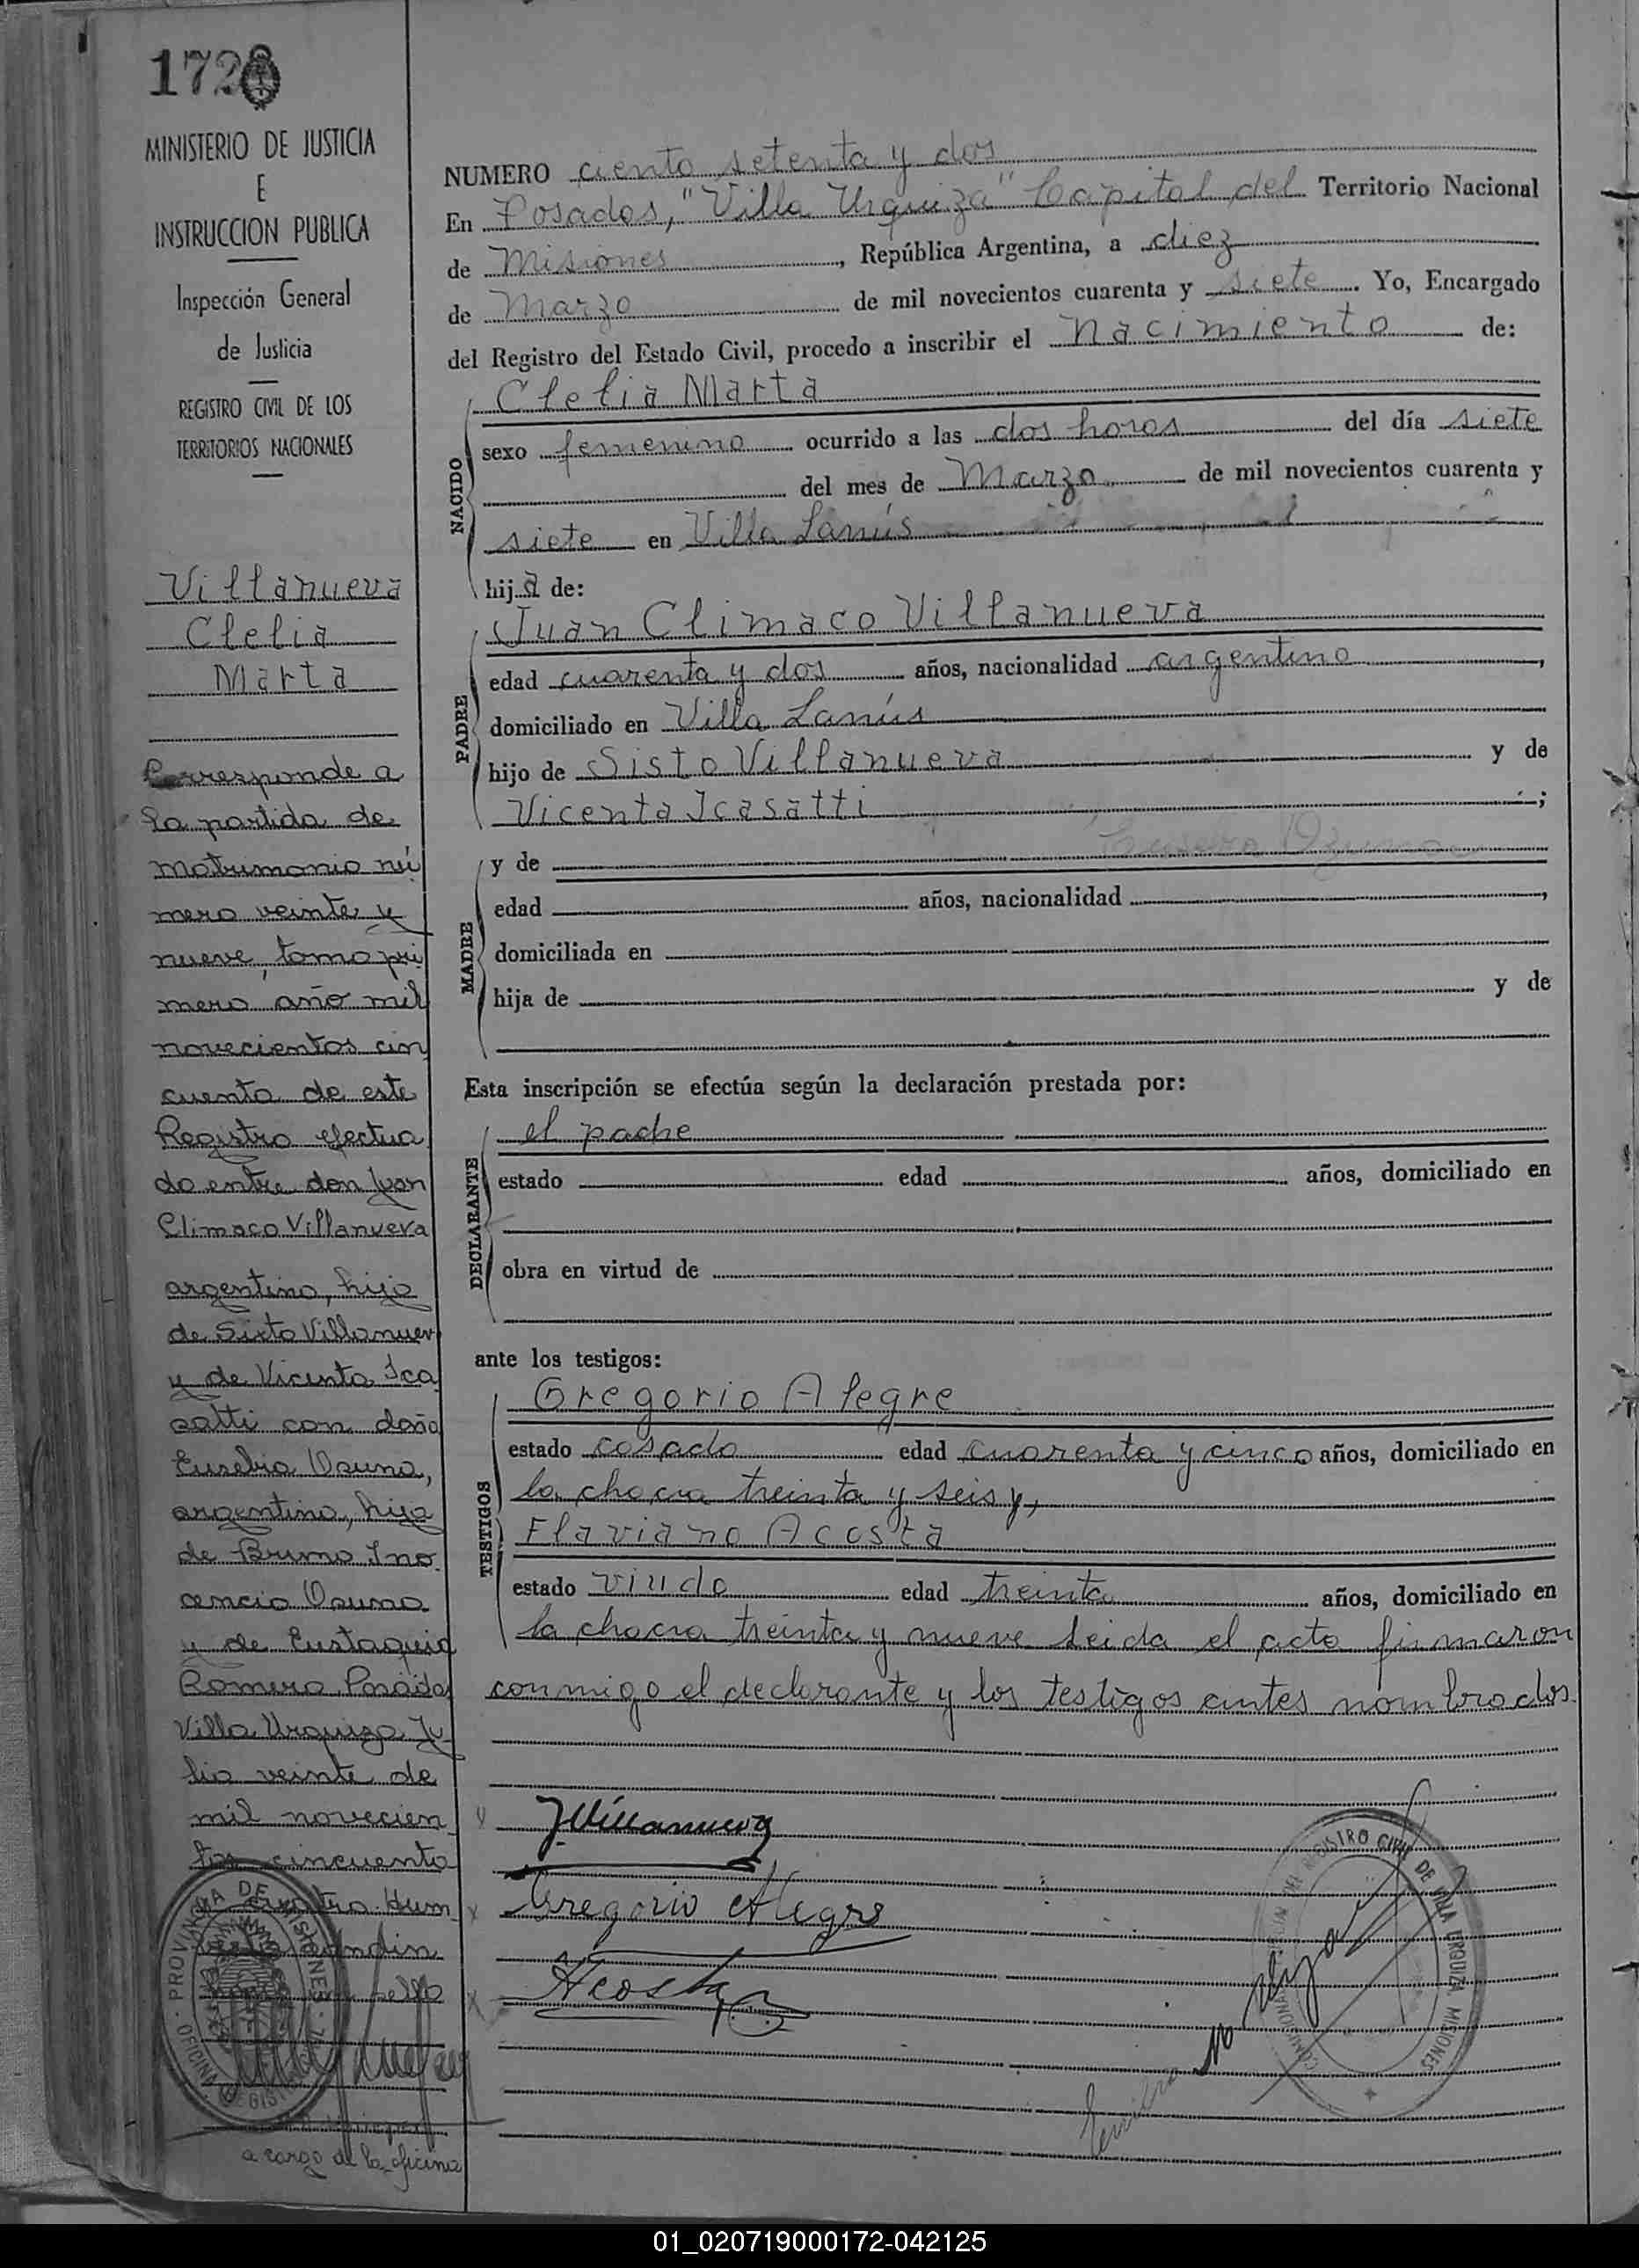 172
MINISTERIO DE JUSTICIA
E
INSTRUCCION PUBLICA
Inspección General
de Justicia
REGISTRO CIVIL DE LOS
TERRITORIOS NACIONALES
Villanueva
Clelia
Marta
Corresponde a
la partida de
matrimonio nú
mero veinte y
nueve, tomo pri
mero año mil
novecientos cin
cuenta de este
Registro efectua
do entre don Juan
Climaco Villanueva
argentino, hijo
de Sixto Villanuev
y de Vicenta Ica
satti con doña
Eusebia Osuna,
argentina, hija
de Bruno Ino
cencio Osuna
y de Eustaquia
Romero Posadas
Villa Urquiza Ju
lio veinte de
mil novecien
tos cincuenta
sello
a cargo de la oficina
NUMERO ciento setenta y dos
En Posadas, "Villa Urquiza" Capital del Territorio Nacional
de Misiones, República Argentina, a diez
de Marzo de mil novecientos cuarenta y siete. Yo, Encargado
del Registro del Estado Civil, procedo a inscribir el Nacimiento de:
NACIDO
Clelia Marta
sexo femenino ocurrido a las dos horas del día siete
del mes de Marzo de mil novecientos cuarenta y
siete en Villa Lanús
hija de:
PADRE
Juan Climaco Villanueva
edad cuarenta y dos años, nacionalidad argentino,
domiciliado en Villa Lanús
hijo de Sisto Villanueva y de
Vicenta Icasatti;
MADRE
y de
edad años, nacionalidad,
domiciliada en
hija de y de
Esta inscripción se efectúa según la declaración prestada por:
DECLARANTE
el padre
estado edad años, domiciliado en
obra en virtud de
ante los testigos:
TESTIGOS
Gregorio Alegre
estado casado edad cuarenta y cinco años, domiciliado en
la chacra treinta y seis y,
Flaviano Acosta
estado viudo edad treinta años, domiciliado en
la chacra treinta y nueve leida el acta firmaron
conmigo el declarante y los testigos antes nombrados.
J. Villanueva
Gregorio Alegre
Acosta
PROVINCIA DE MISIONES
REGISTRO CIVIL DE VILLA URQUIZA MISIONES
01_020719000172-042125